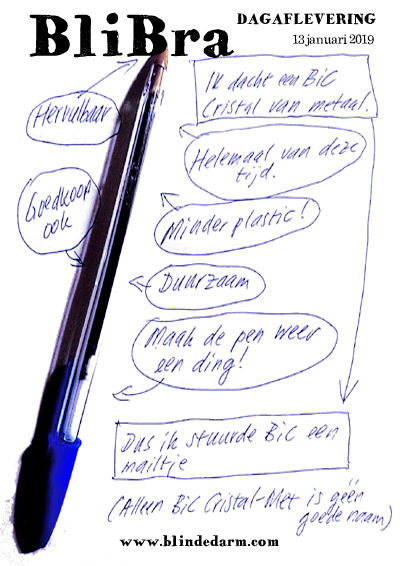 BliBra
DAGAFLEVERING
13 januari 2019
Ik dacht een BiC
Cristal van metaal.
Hervulbaar
Helemaal van deze
tijd.
Goedkoop
ook
Minder plastic!
Duurzaam
Maak de pen weer
een ding!
Dus ik stuurde BiC een
mailtje
(Alleen BiC Cristal-Met is géén
goede naam)
www.blindedarm.com